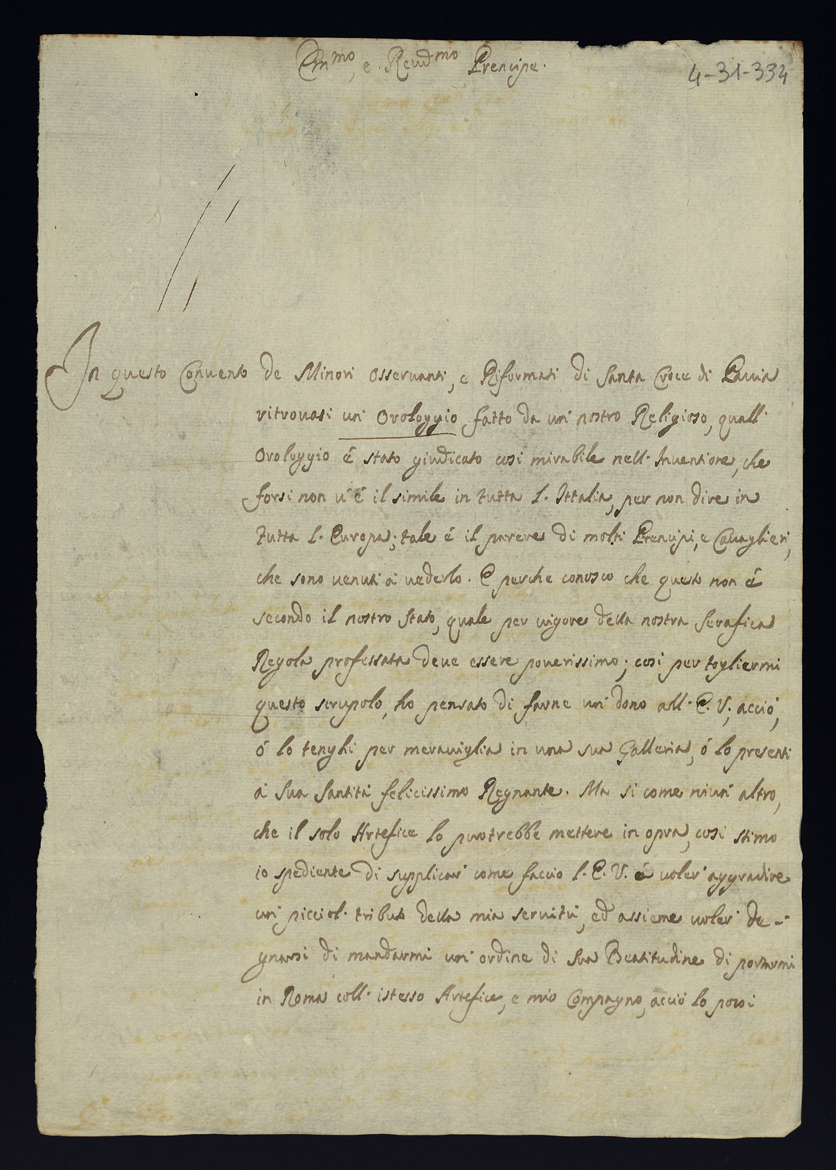 Em.mo, e Reud.mo Prencipe.
4-31-334
In questo Conuento de Minori Osseruanti, e Riformati di Santa Croce di Pauia
ritrouasi un' Orologgio fatto da un' nostro Religioso, quall'
Orologgio é stato giudicato cosi mirabile nell' Inuentione, che
forsi non u' é il simile in tutta l' Ittalia, per non dire in
tutta l' Europa; tale é il parere di molti Prencipi, e Cauaglieri,
che sono uenuti á uederlo. E perche conosco che questo non é
secondo il nostro stato, quale per uigore della nostra Serafica
Regola professata deue essere pouerissimo; cosi per togliermi
questo scrupolo, ho pensato di farne un' dono all' E. V., acció,
ó lo tenghi per merauiglia in una sua Galleria, ó lo presenti
á Sua Santitá felicissimo Regnante. Ma si come niun' altro,
che il solo Artefice lo puotrebbe mettere in opra, cosi stimo
io spediente di supplicar' come faccio l' E. V. á uoler' aggradire
un' picciol' tributo della mia seruitú, ed assieme uoler' de-
gnarsi di mandarmi un' ordine di Sua Beatitudine di portarmi
in Roma coll' istesso Artefice, e mio Compagno, acció lo possi